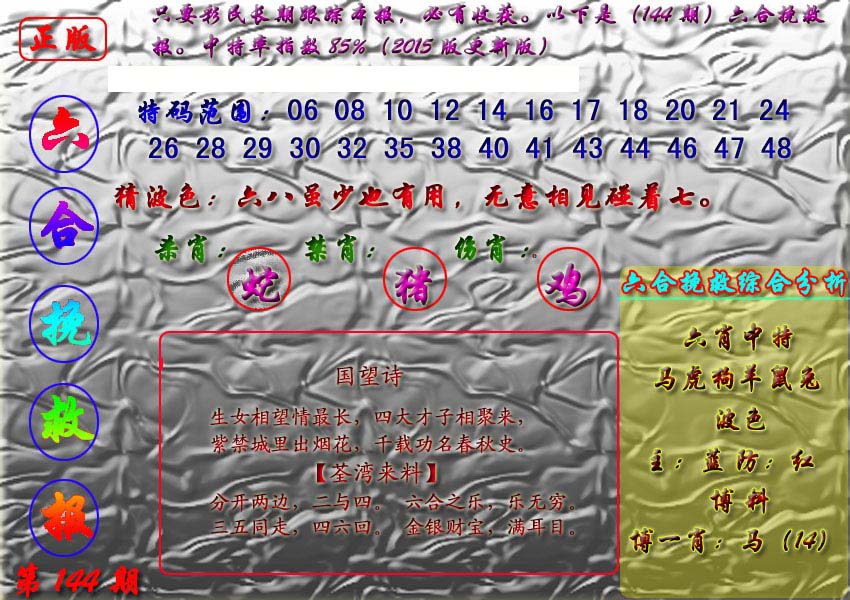 正版
只要彩民长期跟踪本报，必有收获。以下是（144期）六合挽救
报。中特率指数85%（2015版更新版）
六
合
挽
救
报
第144期
特码范围：06 08 10 12 14 16 17 18 20 21 24
26 28 29 30 32 35 38 40 41 43 44 46 47 48
猜波色：六八虽少也有用，无意相见碰着七。
杀肖：蛇 禁肖：猪 伤肖：鸡
国望诗
生女相望情最长，四大才子相聚来，
紫禁城里出烟花，千载功名春秋史。
【荃湾来料】
分开两边，二与四。 六合之乐，乐无穷。
三五同走，四六回。 金银财宝，满耳目。
六合挽救综合分析
六肖中特
马虎狗羊鼠兔
波色
主：蓝防：红
博料
博一肖：马（14）